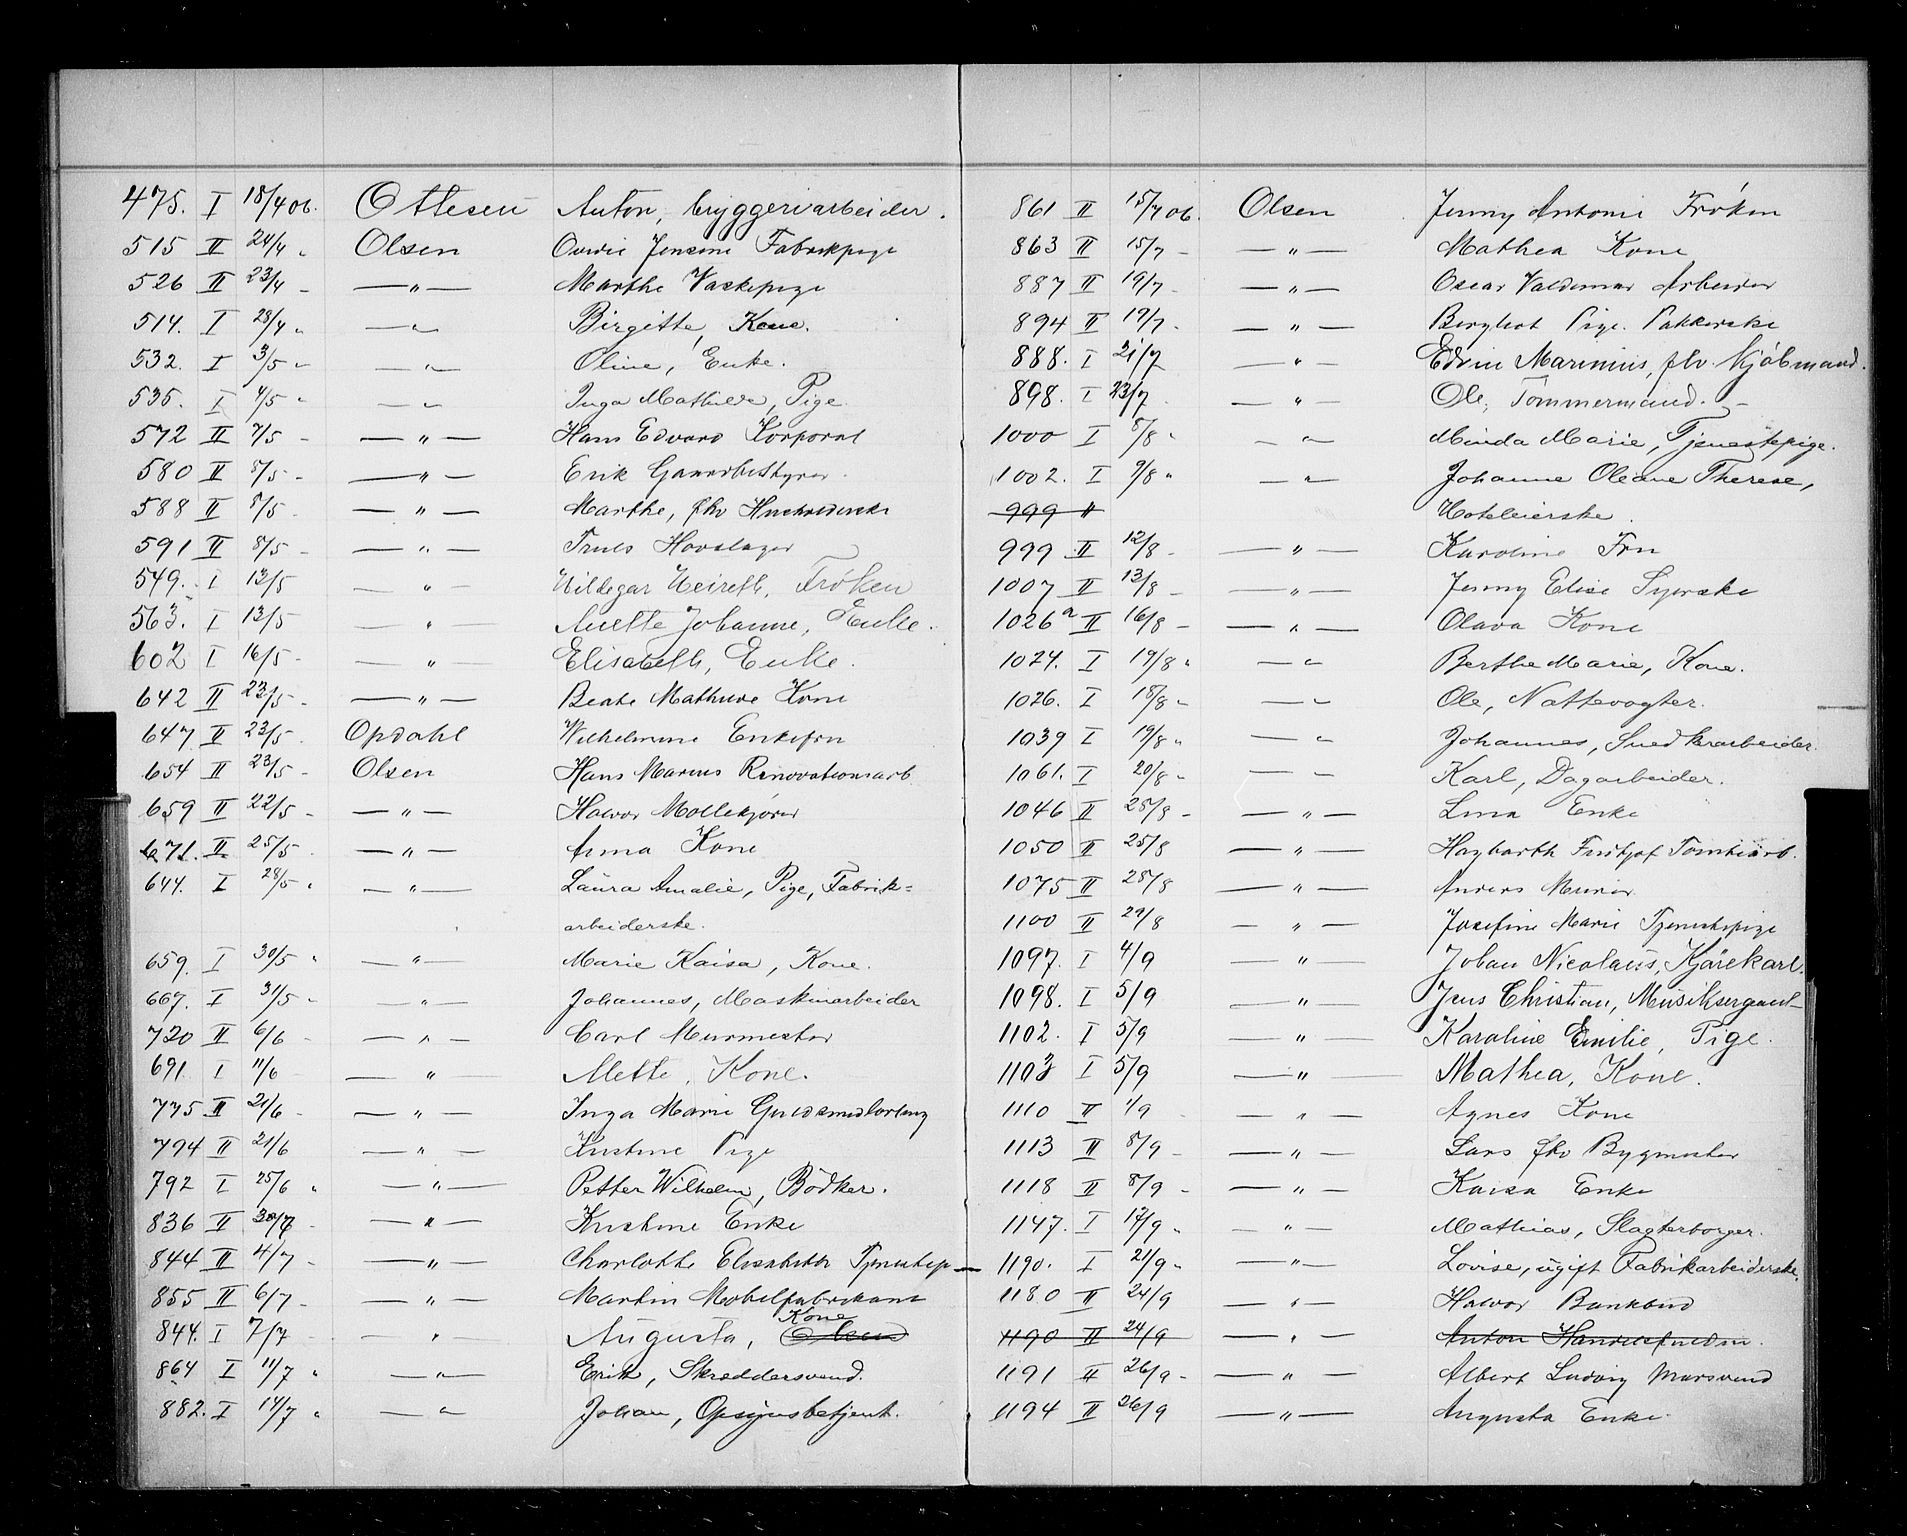 475. I 18/4 06. Ottesen Anton, bryggeriarbeider.
515 II 24/4 " Olsen Jensine Fabrikpige
526 II 23/4 - — " — Marthe Vaskepige
514. I 28/4 " — " — Birgitte, Kone.
532. I 3/5 " — " — Oline, Enke.
535. I 4/5 " — " — Inga Mathilde, Pige.
572 II 7/5 - — " — Hans Edvard Korporal
580 II 8/5 - — " — Erik Gaardbestyrer.
588 II 8/5 - — " — Marthe, fhv
591 II 8/5 - — " — Truls Hovslager
549. I 13/5 — " — Hildegar Frøken
563. I 13/5 — " — Anette Johanne, Enke.
602 I 16/5 - — " — Elisabeth, Enke.
642 II 23/5 - — " — Beate Mathilde Kone
647 II 23/5 - Opdahl Wilhelmine Enkefru
654 II 23/5 - Olsen Hans Marius Renovationsarb.
659 II 22/5 - — " — Halvor Møllekjører
671. II 25/5 — " — Anna Kone
644. I 28/5 " — " — Laura Amalie, Pige, Fabrik=
arbeiderske.
659. I 30/5 " — " — Marie Kaisa, Kone.
667. I 31/5 " — " — Johannes, Maskinarbeider
720 II 6/6 - — " — Carl Murmester
691. I 11/6 — " — Mette, Kone.
775 II 21/6 - — " — Inga Marie
794 II 21/6 — " — Kristine Pige
792 I 25/6 " — " — Petter Wilhelm, Bødker.
836 II 30/6 - — " — Kristine Enke
844 II 4/7 - — " — Charlotte Elisabeth Tjenestep
855 II 6/7 - — " — Martin Møbelfabrikant
844. I 7/7 " Augusta, Kone
864 I 11/7 " — " — Erik, Skræddersvend.
882. I 14/7 " — " — Johan, Opsynsbetjent.
861 II 15/7 06. Olsen Jenny Antonie Frøken
863 II 15/7 - — " — Mathea Kone
887 II 19/7 - — " — Oscar Valdemar Arbeider
894 II 19/7 - — " — Borghot Pige. Pakkerske
888. I 21/7 — " — Edvin Marinius, fhv. Kjøbmand.
898. I 23/7 - — " — Ole, Tømmermand.
1000 I 8/8 " — " — Minda Marie, Tjenestepige.
1002. I 9/8 " — " — Johanne Oleane Therese,
999 II Hoteleierske.
999 II 12/8 - — " — Karoline Fru
1007 II 13/8 - — " — Jenny Elise Syerske
1026 a II 16/8 - — " — Olava Kone
1024. I 17/8 " — " — Berthe Marie, Kone.
1026. I 18/8 " — " — Ole, Nattevogter.
1039 I 19/8 " — " — Johannes, Snedkerarbeider.
1061. I 20/8 " — " — Karl, Dagarbeider.
1046 II 25/8 - — " — Lina Enke
1050 II 25/8 — " — Haybarth Fritjof Tomtearb.
1075 II 28/8 — " — Anders Murer
1100 II 29/8 — " — Josefine Marie Tjenestepige
1097. I 4/9 — " — Johan Nicolaus, Kjørekarl.
1098. I 5/9 — " — Jens Christian, Musiksergeant
1102. I 5/9 — " — Karoline Emilie, Pige.
1103 I 5/9 — " — Mathea, Kone.
1110 II 1/9 - — " — Agnes Kone
1113 II 8/9 - — " — Lars fhv Bygmester
1118 II 8/9 - — " — Kaisa Enke
1147. I 17/9 " — " — Mathias, Slagterborger.
1190. I 21/9 " — " — Lovise, ugift Fabrikarbeiderske.
1180 II 24/9 — " — Halvor Bankbud
1190 II 24/9 — " — Anton Handelsfuldm.
1191 II 26/9 - — " — Albert Ludvig Mursvend
1194 II 26/9 — " — Augusta Enke.